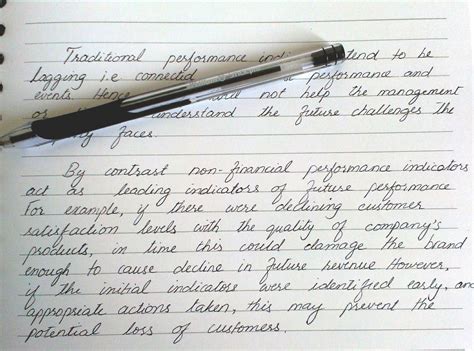 Traditional performance tend to be
lagging i.e connected performance and
events. Hence not help the management
or understand the future challenges the
faces.
By contrast non-financial performance indicators
act as leading indicators of future performance
For example, if there were declining customer
satisfaction levels with the quality of company's
products, in time this could damage the brand
enough to cause decline in future revenue However,
if the initial indicators were identified early, and
appropriate actions taken, this may prevent the
potential loss of customers.